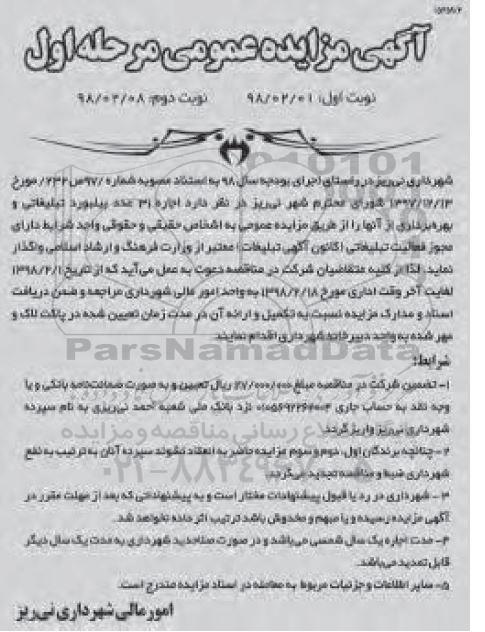 آگهی مزایده عمومی مرحله اول
نوبت اول: ۹۸/۰۲/۰۱ نوبت دوم: ۹۸/۰۲/۰۸
شهرداری نی‌ریز در راستای اجرای بودجه سال ۹۸ به استناد مصوبه شماره ۹۷/ص/۲۳۲ مورخ
۱۳۹۷/۱۲/۱۳ شورای محترم شهر نی‌ریز در نظر دارد اجاره ۳۱ عدد بیلبورد تبلیغاتی و
بهره‌برداری از آنها را از طریق مزایده عمومی به اشخاص حقیقی و حقوقی واجد شرایط دارای
مجوز فعالیت تبلیغاتی (کانون آگهی تبلیغات) معتبر از وزارت فرهنگ و ارشاد اسلامی واگذار
نماید. لذا از کلیه متقاضیان شرکت در مناقصه دعوت به عمل می‌آید که از تاریخ ۱۳۹۸/۲/۱
لغایت آخر وقت اداری مورخ ۱۳۹۸/۲/۱۸ به واحد امور مالی شهرداری مراجعه و ضمن دریافت
اسناد و مدارک مزایده نسبت به تکمیل و ارائه آن در مدت زمان تعیین شده در پاکت لاک و
مهر شده به واحد دبیرخانه شهرداری اقدام نمایند.
ParsNamadData
شرایط:
۱- تضمین شرکت در مناقصه مبلغ ۲۷/۰۰۰/۰۰۰ ریال تعیین و به صورت ضمانت‌نامه بانکی و یا
وجه نقد به حساب جاری نزد بانک ملی شعبه احمد نی‌ریزی به نام سپرده
شهرداری نی‌ریز واریز گردد.
۲- چنانچه برندگان اول، دوم و سوم مزایده حاضر به انعقاد نشوند سپرده آنان به ترتیب به نفع
شهرداری ضبط و مناقصه تجدید می‌گردد.
۳- شهرداری در رد یا قبول پیشنهادات مختار است و به پیشنهاداتی که بعد از مهلت مقرر در
آگهی مزایده رسیده و یا مبهم و مخدوش باشد ترتیب اثر داده نخواهد شد.
۴- مدت اجاره یک سال شمسی می‌باشد و در صورت صلاحدید شهرداری به مدت یک سال دیگر
قابل تمدید می‌باشد.
۵- سایر اطلاعات و جزئیات مربوط به معامله در اسناد مزایده مندرج است.
امور مالی شهرداری نی‌ریز